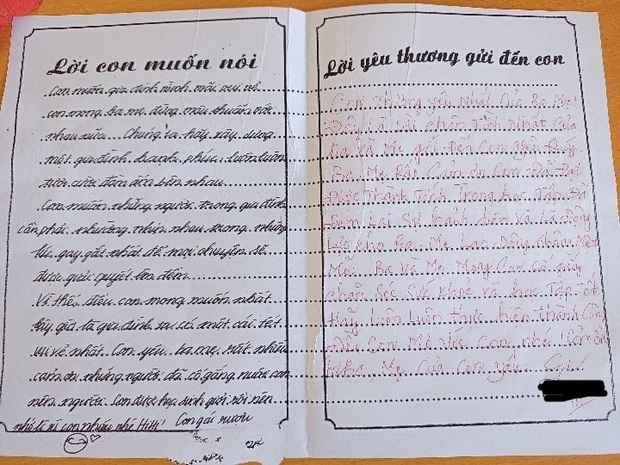 Lời con muốn nói
Con muốn gia đình mình mãi vui vẻ
con mong ba mẹ đừng mâu thuẫn với
nhau nữa. Chúng ta hãy xây dựng
một gia đình hạnh phúc, luôn luôn
tươi cười đến bên nhau
Con muốn những người trong gia đình
cần phải nhường nhịn nhau trong những
lúc gay gắt nhất để mọi chuyện sẽ
được giải quyết êm đềm
Vì thế, điều con mong muốn nhất
bây giờ là gia đình ta có một cái tết
vui vẻ nhất. Con yêu ba mẹ rất nhiều
cảm ơn những người đã cố gắng nuôi con
nên người. Con được học sinh giỏi rồi nên
nhớ lì xì con nhiều nhé HiHi! Con gái rượu
Lời yêu thương gửi đến con
Con Thương yêu Nhất Của Ba Mẹ!
Đây là lời chân Tình Nhất Của
Ba và Mẹ gửi Đến Con yêu Quý
Ba Mẹ Rất Cảm ơn Con Đã Đạt
Được Thành Tích Trong học Tập Đã
Đem Lại Sự hạnh diện và Là Động
Lực cho Ba Mẹ Lao Động
Mỏi Ba và Mẹ Mong Con Cố gắng
chăm Sóc Sức khỏe và học Tập Tốt
hãy Luôn Luôn thực hiện thành công
Điều Con Mơ ước Con nhé! Cảm ơn
Mẹ Của Con yêu